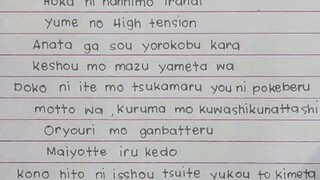 Hoka ni nannimo iranai
Yume no High tension
Anata ga sou yorokobu kara
keshou mo mazu yameta wa
Doko ni ite mo tsukamaru you ni pokeberu
motto wa, Kuruma mo kuwashikunattashi
Oryouri mo ganbatteru
Maiyotte iru kedo
Kono hito ni isshou tsuite yukou to kimeta